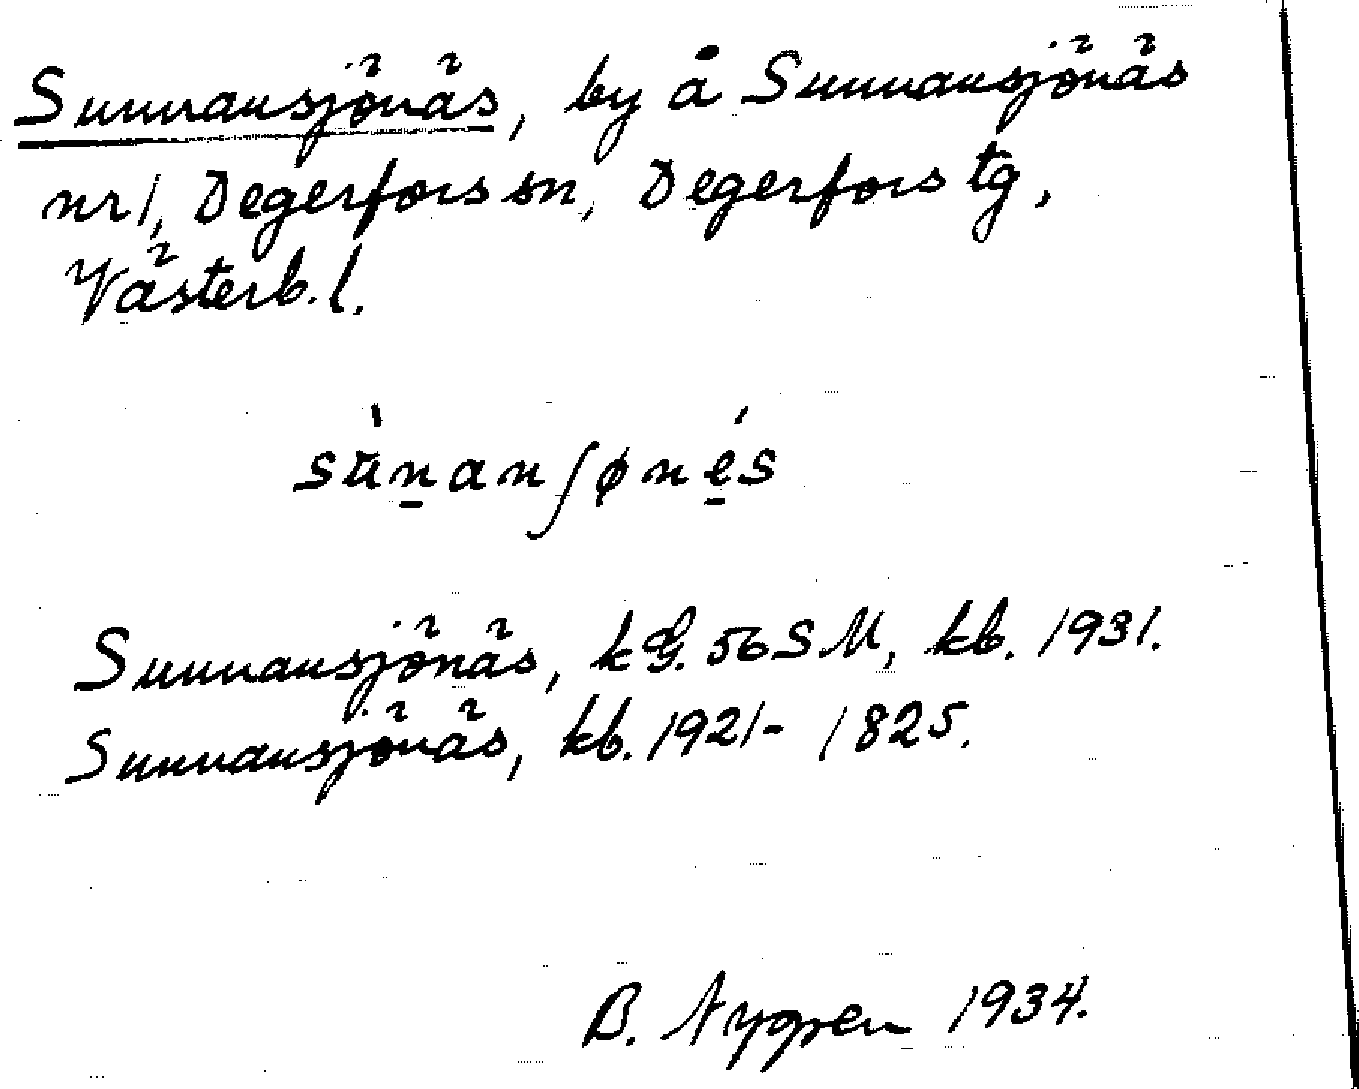 Sunnansjönäs, by å Sunnansjönäs
nr 1, Degerfors sn, Degerfors tg,
Västerb. l.
sùnanʃønés
Sunnansjönäs, kG. 56 SM, kb. 1931.
Sunnansjönäs, kb. 1921-1825.
B. Nygren 1934.